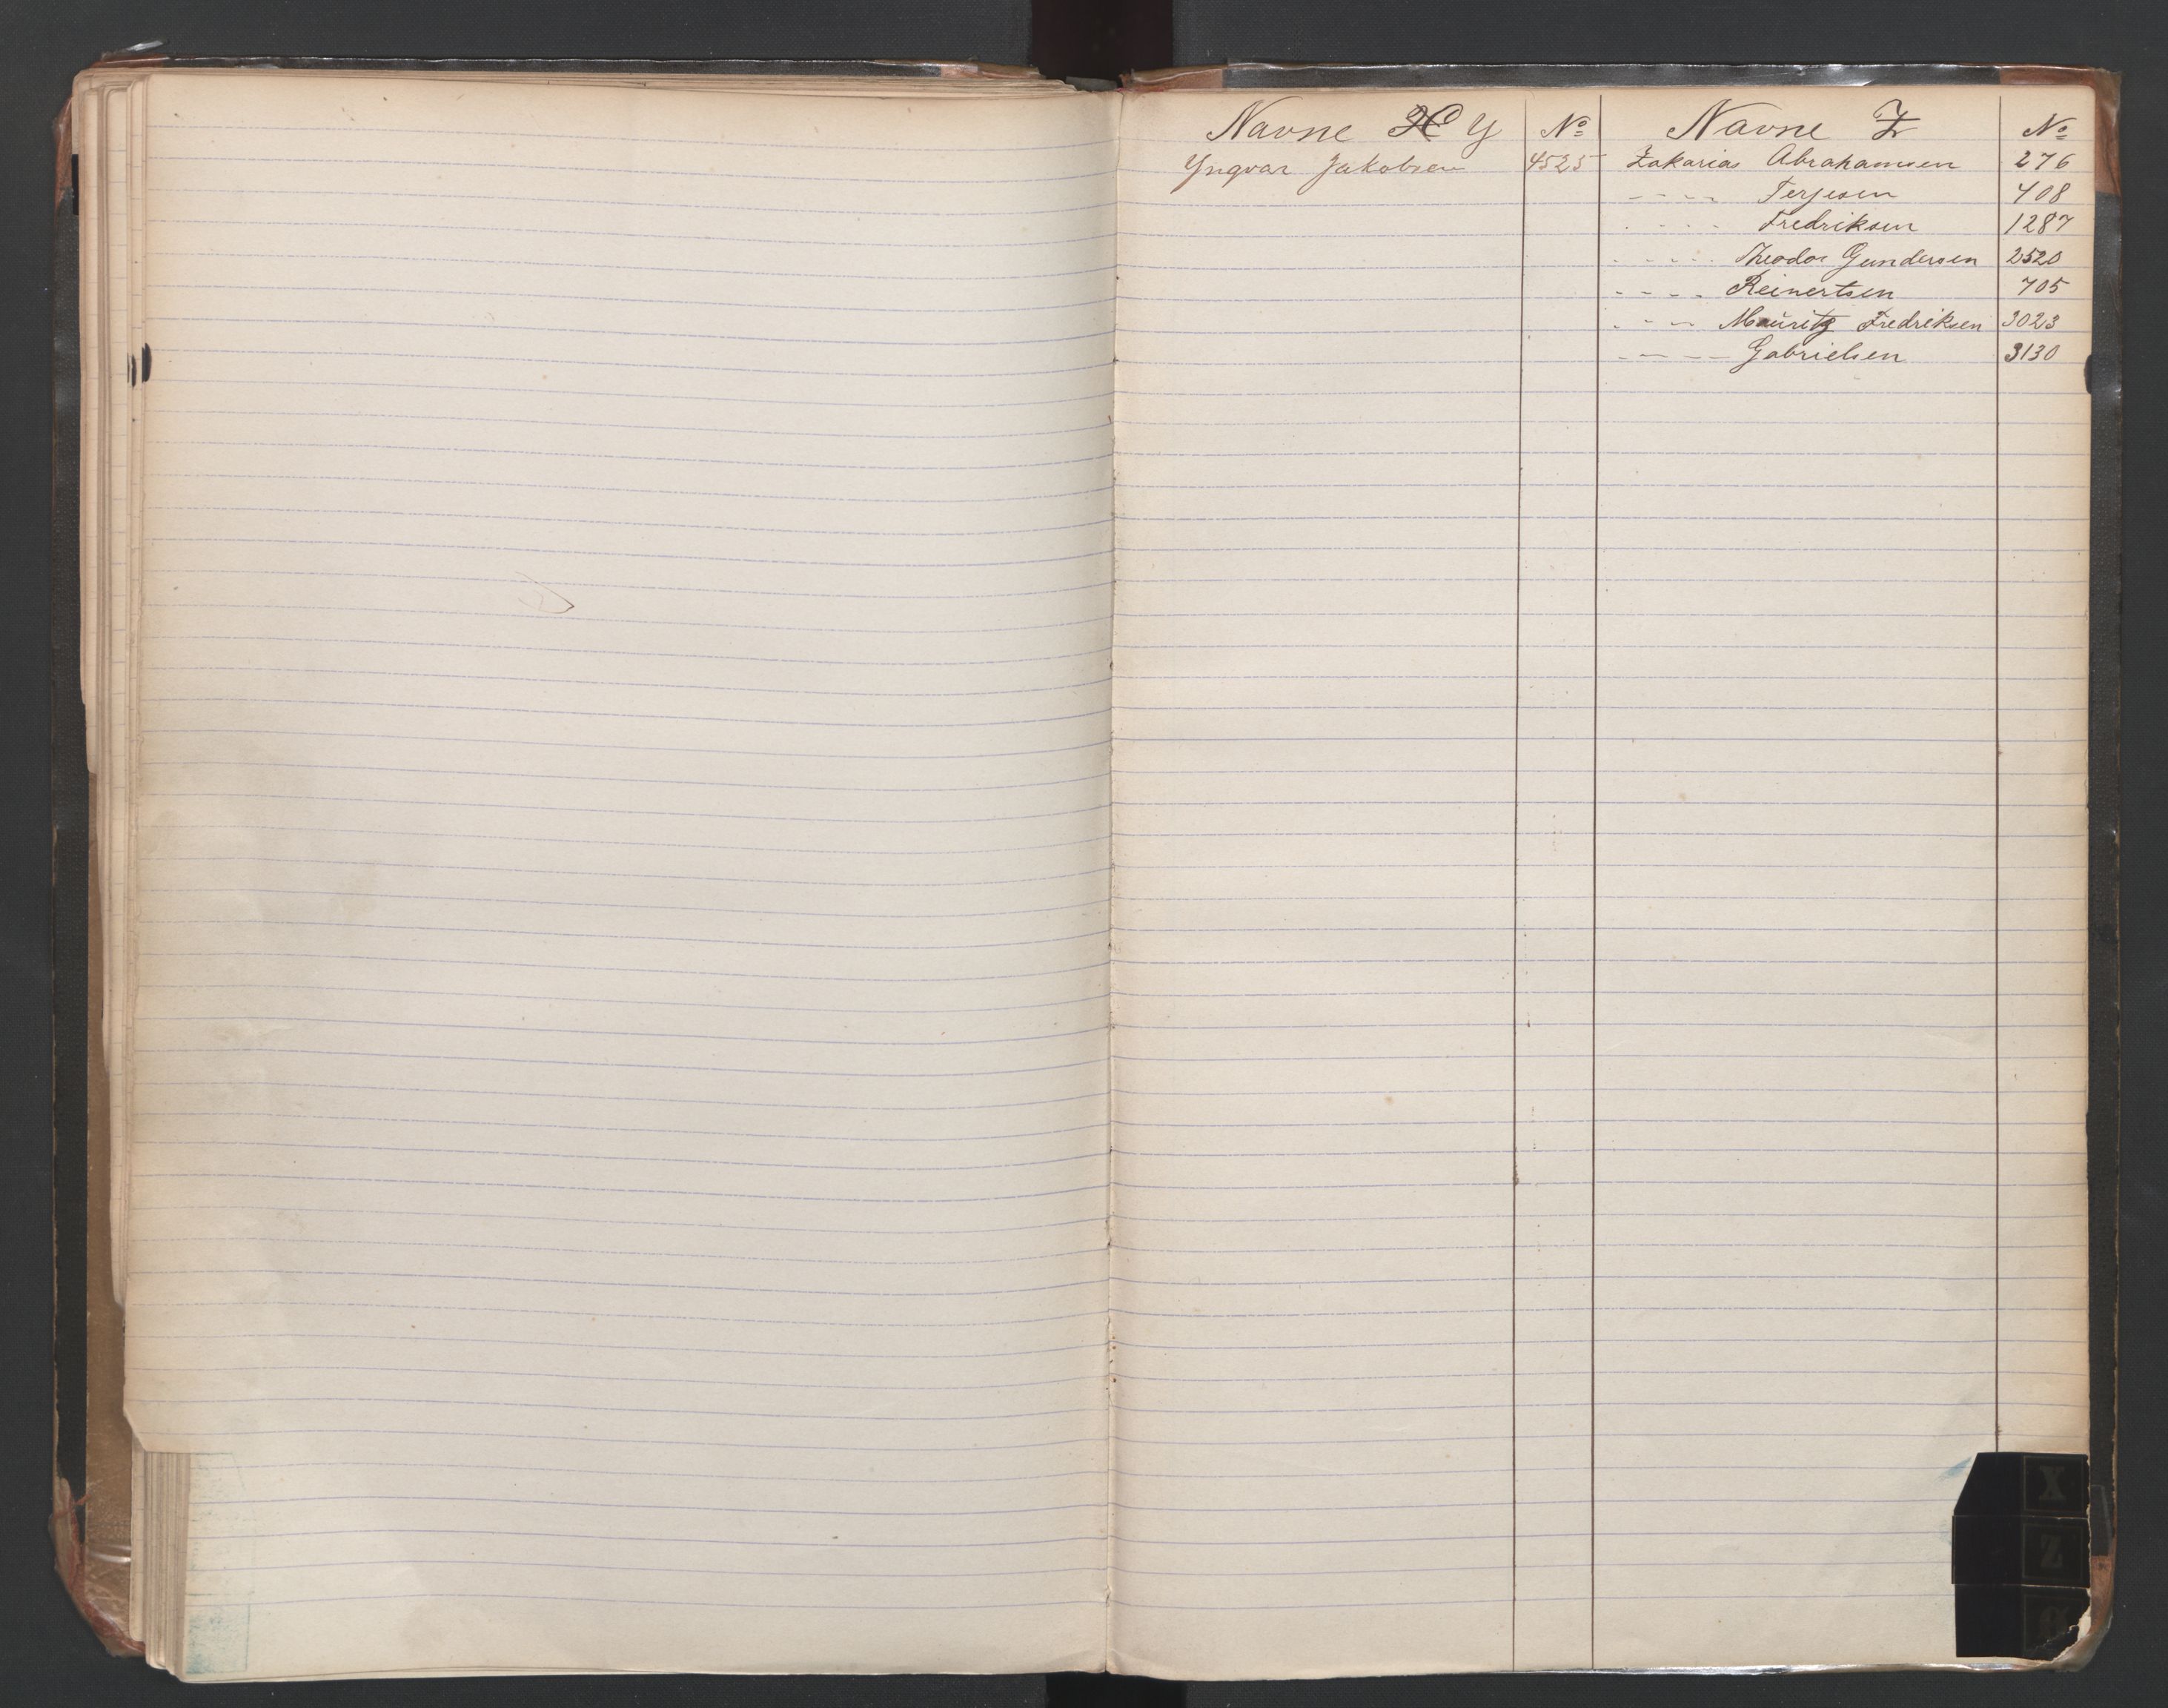 Navne X Y № Navne Z №
Yngvar Jakobsen 4525 Zakarias Abrahamsen 276
---- Terjesen 408
---- Fredriksen 1287
----- Theodor Gundersen 2520
---- Reinertsen 705
--- Mauritz Fredriksen 3023
----- Gabrielsen 3130
X
Z
Ø